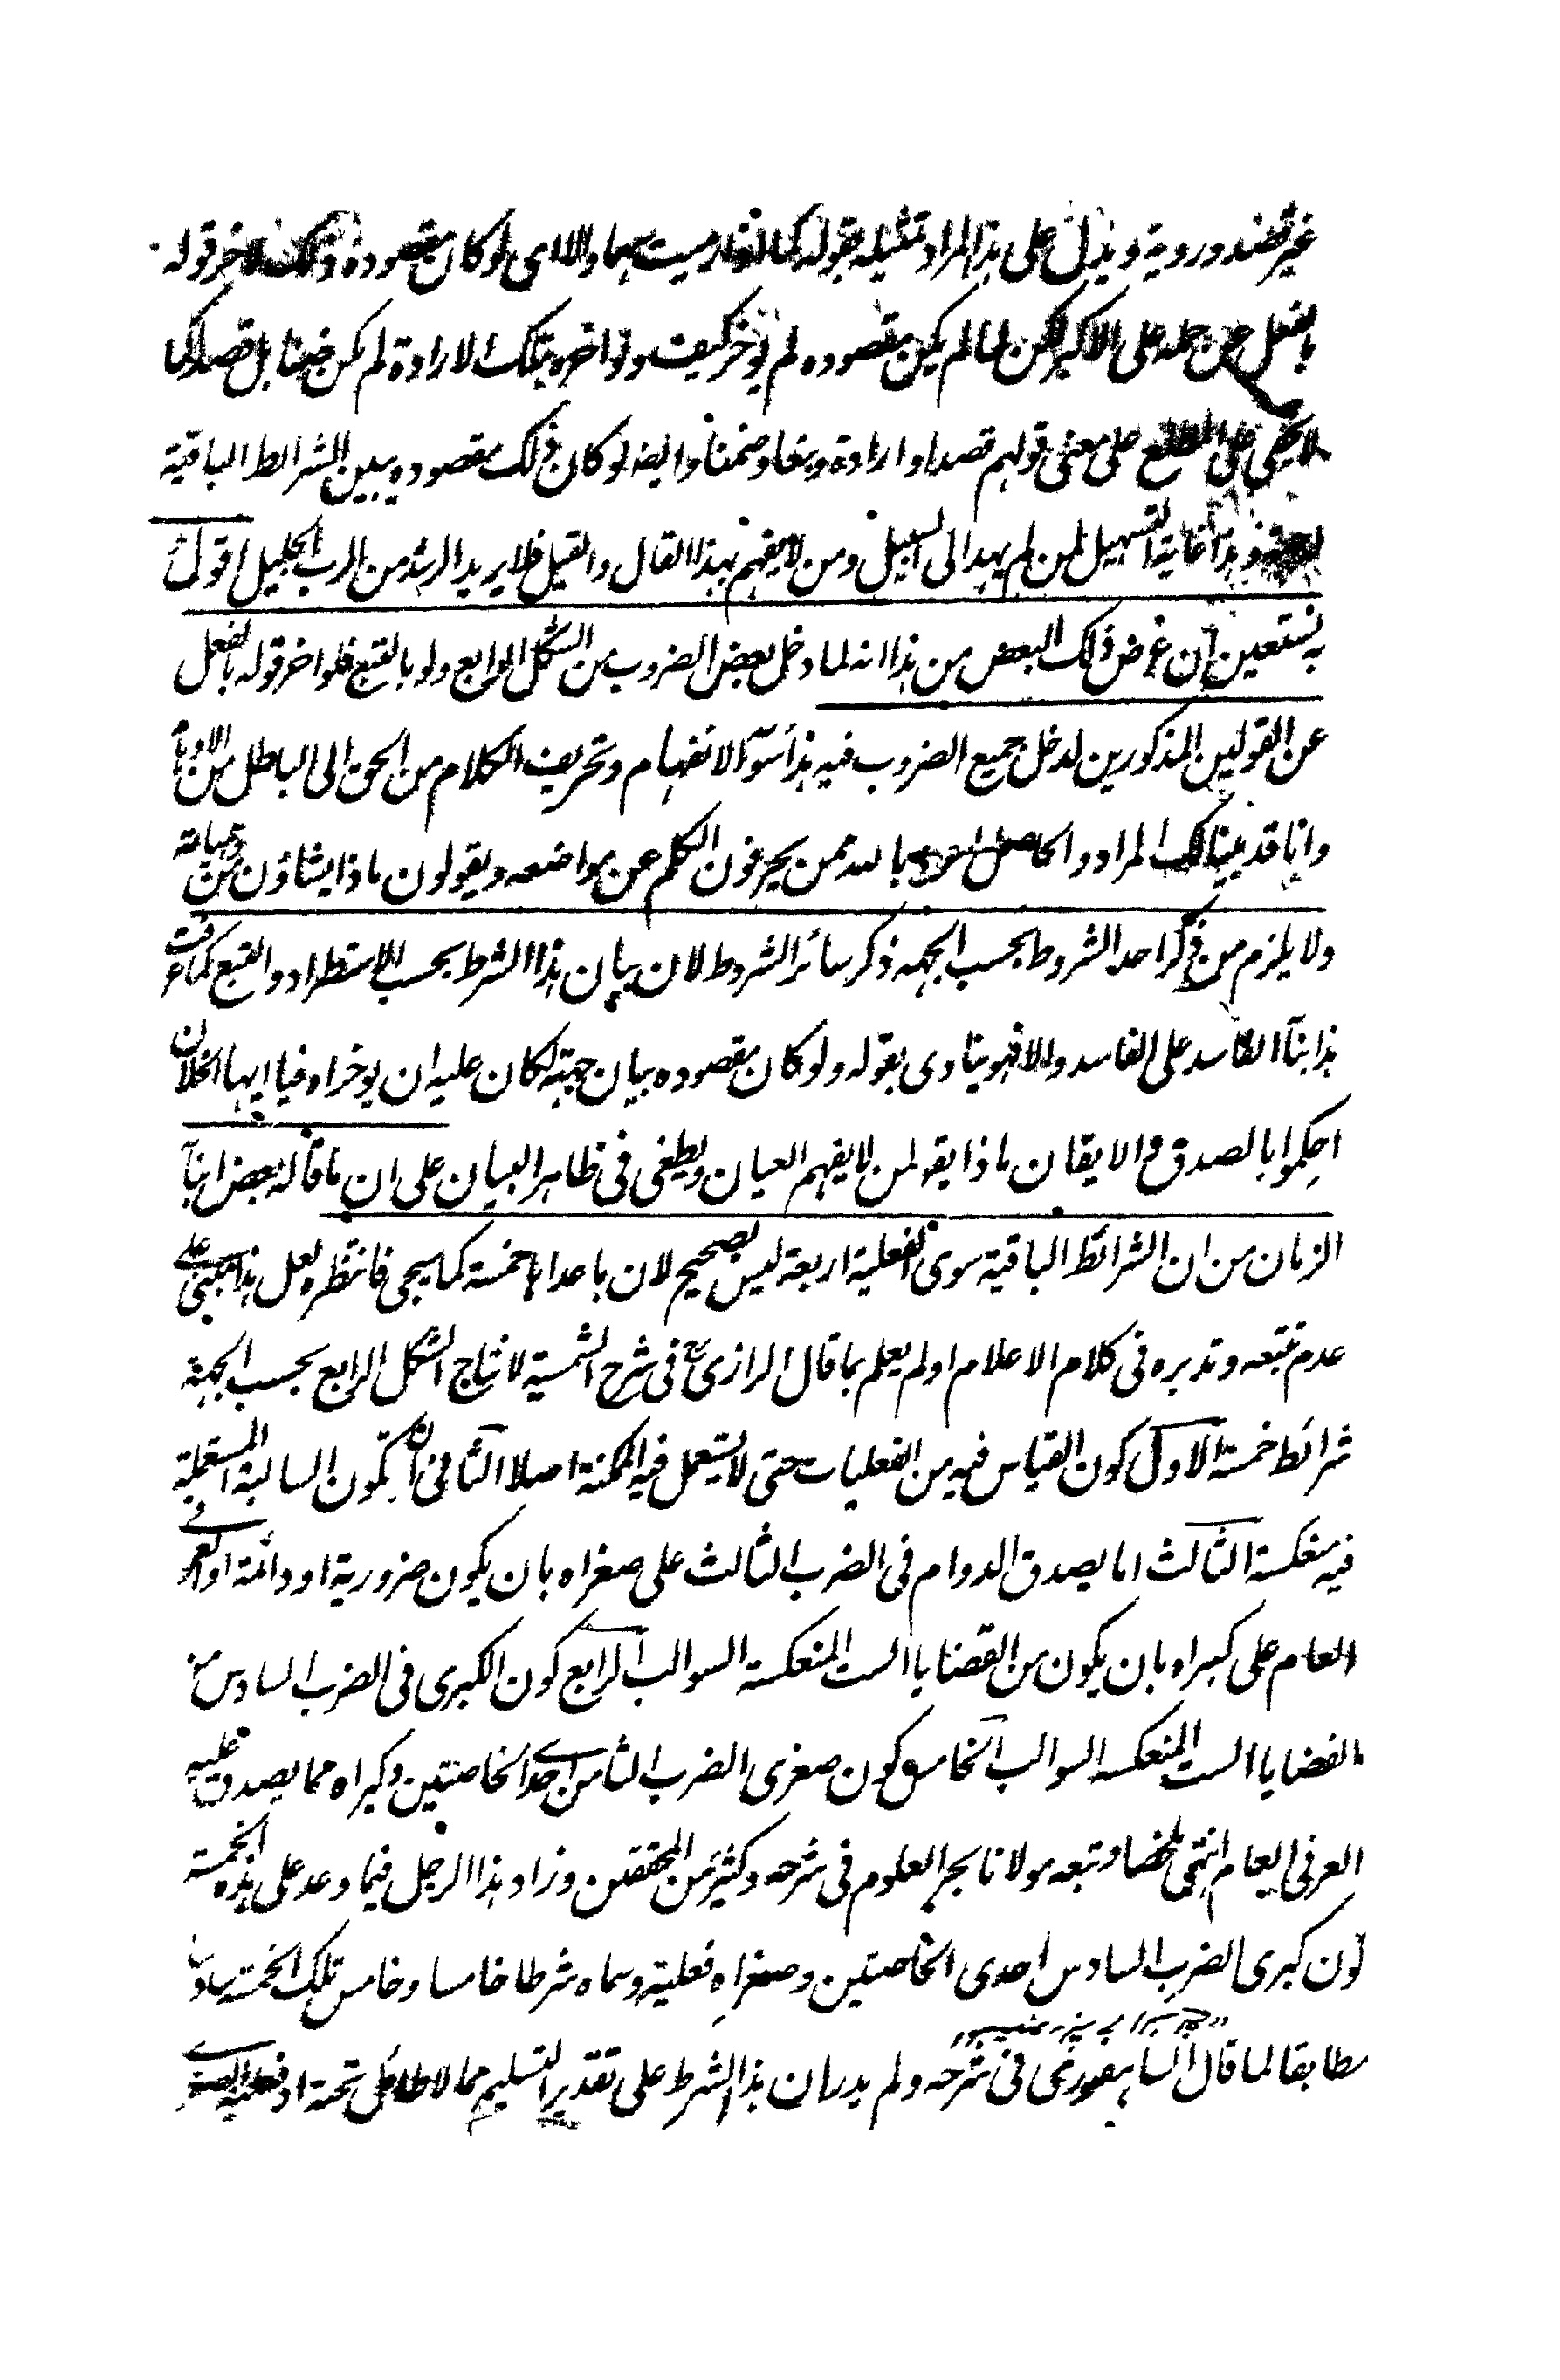 غير قصد وروية ويدل على هذا المراد تمثيله بقوله كما رميت سهما والا اى لو كان مقصوده ذلك لاخر قوله
بالفعل عن حمله على الاكبر لكن لما لم يكن مقصوده لم يؤخر كيف ولو اخره بتلك الارادة لم يكن ضمنا بل قصدا كما
لا يخفى على المطلع على معنى قولهم قصدا وارادة وتبعا وضمنا وايضا لو كان ذلك مقصوده يبين الشرائط الباقية
وهذا غاية التسهيل لمن لم يهد الى السبيل ومن لا يفهم بهذا القال والقيل فلا يريد الرشد من الرب الجليل اقول
به نستعين ان غرض ذلك البعض من هذا انه لما دخل بعض الضروب من الشكل الرابع ولو بالتبع فلو اخر قوله بالفعل
عن القولين المذكورين لدخل جميع الضروب فيه هذا سوٓء الانفهام وتحريف الكلام من الحق الى الباطل من الاوهام
وانا قد بينا لك المراد والحاصل اعوذ بالله ممن يحرفون الكلم عن مواضعه ويقولون ماذا يشاؤن من
ولا يلزم من ذكر احد الشروط بحسب الجهة ذكر سائر الشروط لان بيان هذا الشرط بحسب الاستطراد والتبع كما عرفت
هذا بنآء الفاسد على الفاسد والا فهو ينادى بقوله ولو كان مقصوده بيان جهته لكان عليه ان يوخراه فيا ايها الخلان
احكموا بالصدق والايقان ماذا يقو لمن لا يفهم العيان ويطغى فى ظاهر البيان على ان ما قاله بعض ابنآء
الزمان من ان الشرائط الباقية سوى الفعلية اربعة ليس بصحيح لان ما عداها خمسة كما يجى فانتظره لعل هذا مبنى على
عدم تتبعه وتدبره فى كلام الاعلام اولم يعلم بما قال الرازى رح فى شرح الشمسية لانتاج الشكل الرابع بحسب الجهة
شرائط خمسة الاول كون القياس فيه من الفعليات حتى لا يستعمل فيه الممكنة اصلا الثانى ان تكون السالبة المستعملة
فيه منعكسة الثالث اما يصدق الدوام فى الضرب الثالث على صغراه بان يكون ضرورية او دائمة او العرفى
العام على كبراه بان يكون من القضايا الست المنعكسة السوالب الرابع كون الكبرى فى الضرب السادس من
القضايا الست المنعكسة السوالب الخامس كون صغرى الضرب الثامن احدى الخاصتين وكبراه مما يصدق عليه
العرفى العام انتهى ملخصا وتبعه مولانا بحر العلوم فى شرحه وكثير من المحققين وزاد هذا الرجل فيما وعد على هذه الخمسة
كون كبرى الضرب السادس احدى الخاصتين وصغراه فعلية وسماه شرطا خامسا وخامس تلك الخمسة سادسا
مطابقا لما قال السيالكوتى فى شرحه ولم يدر ان هذا الشرط على تقدير التسليم مما لا طائل تحته اذ فعلية الصغرى